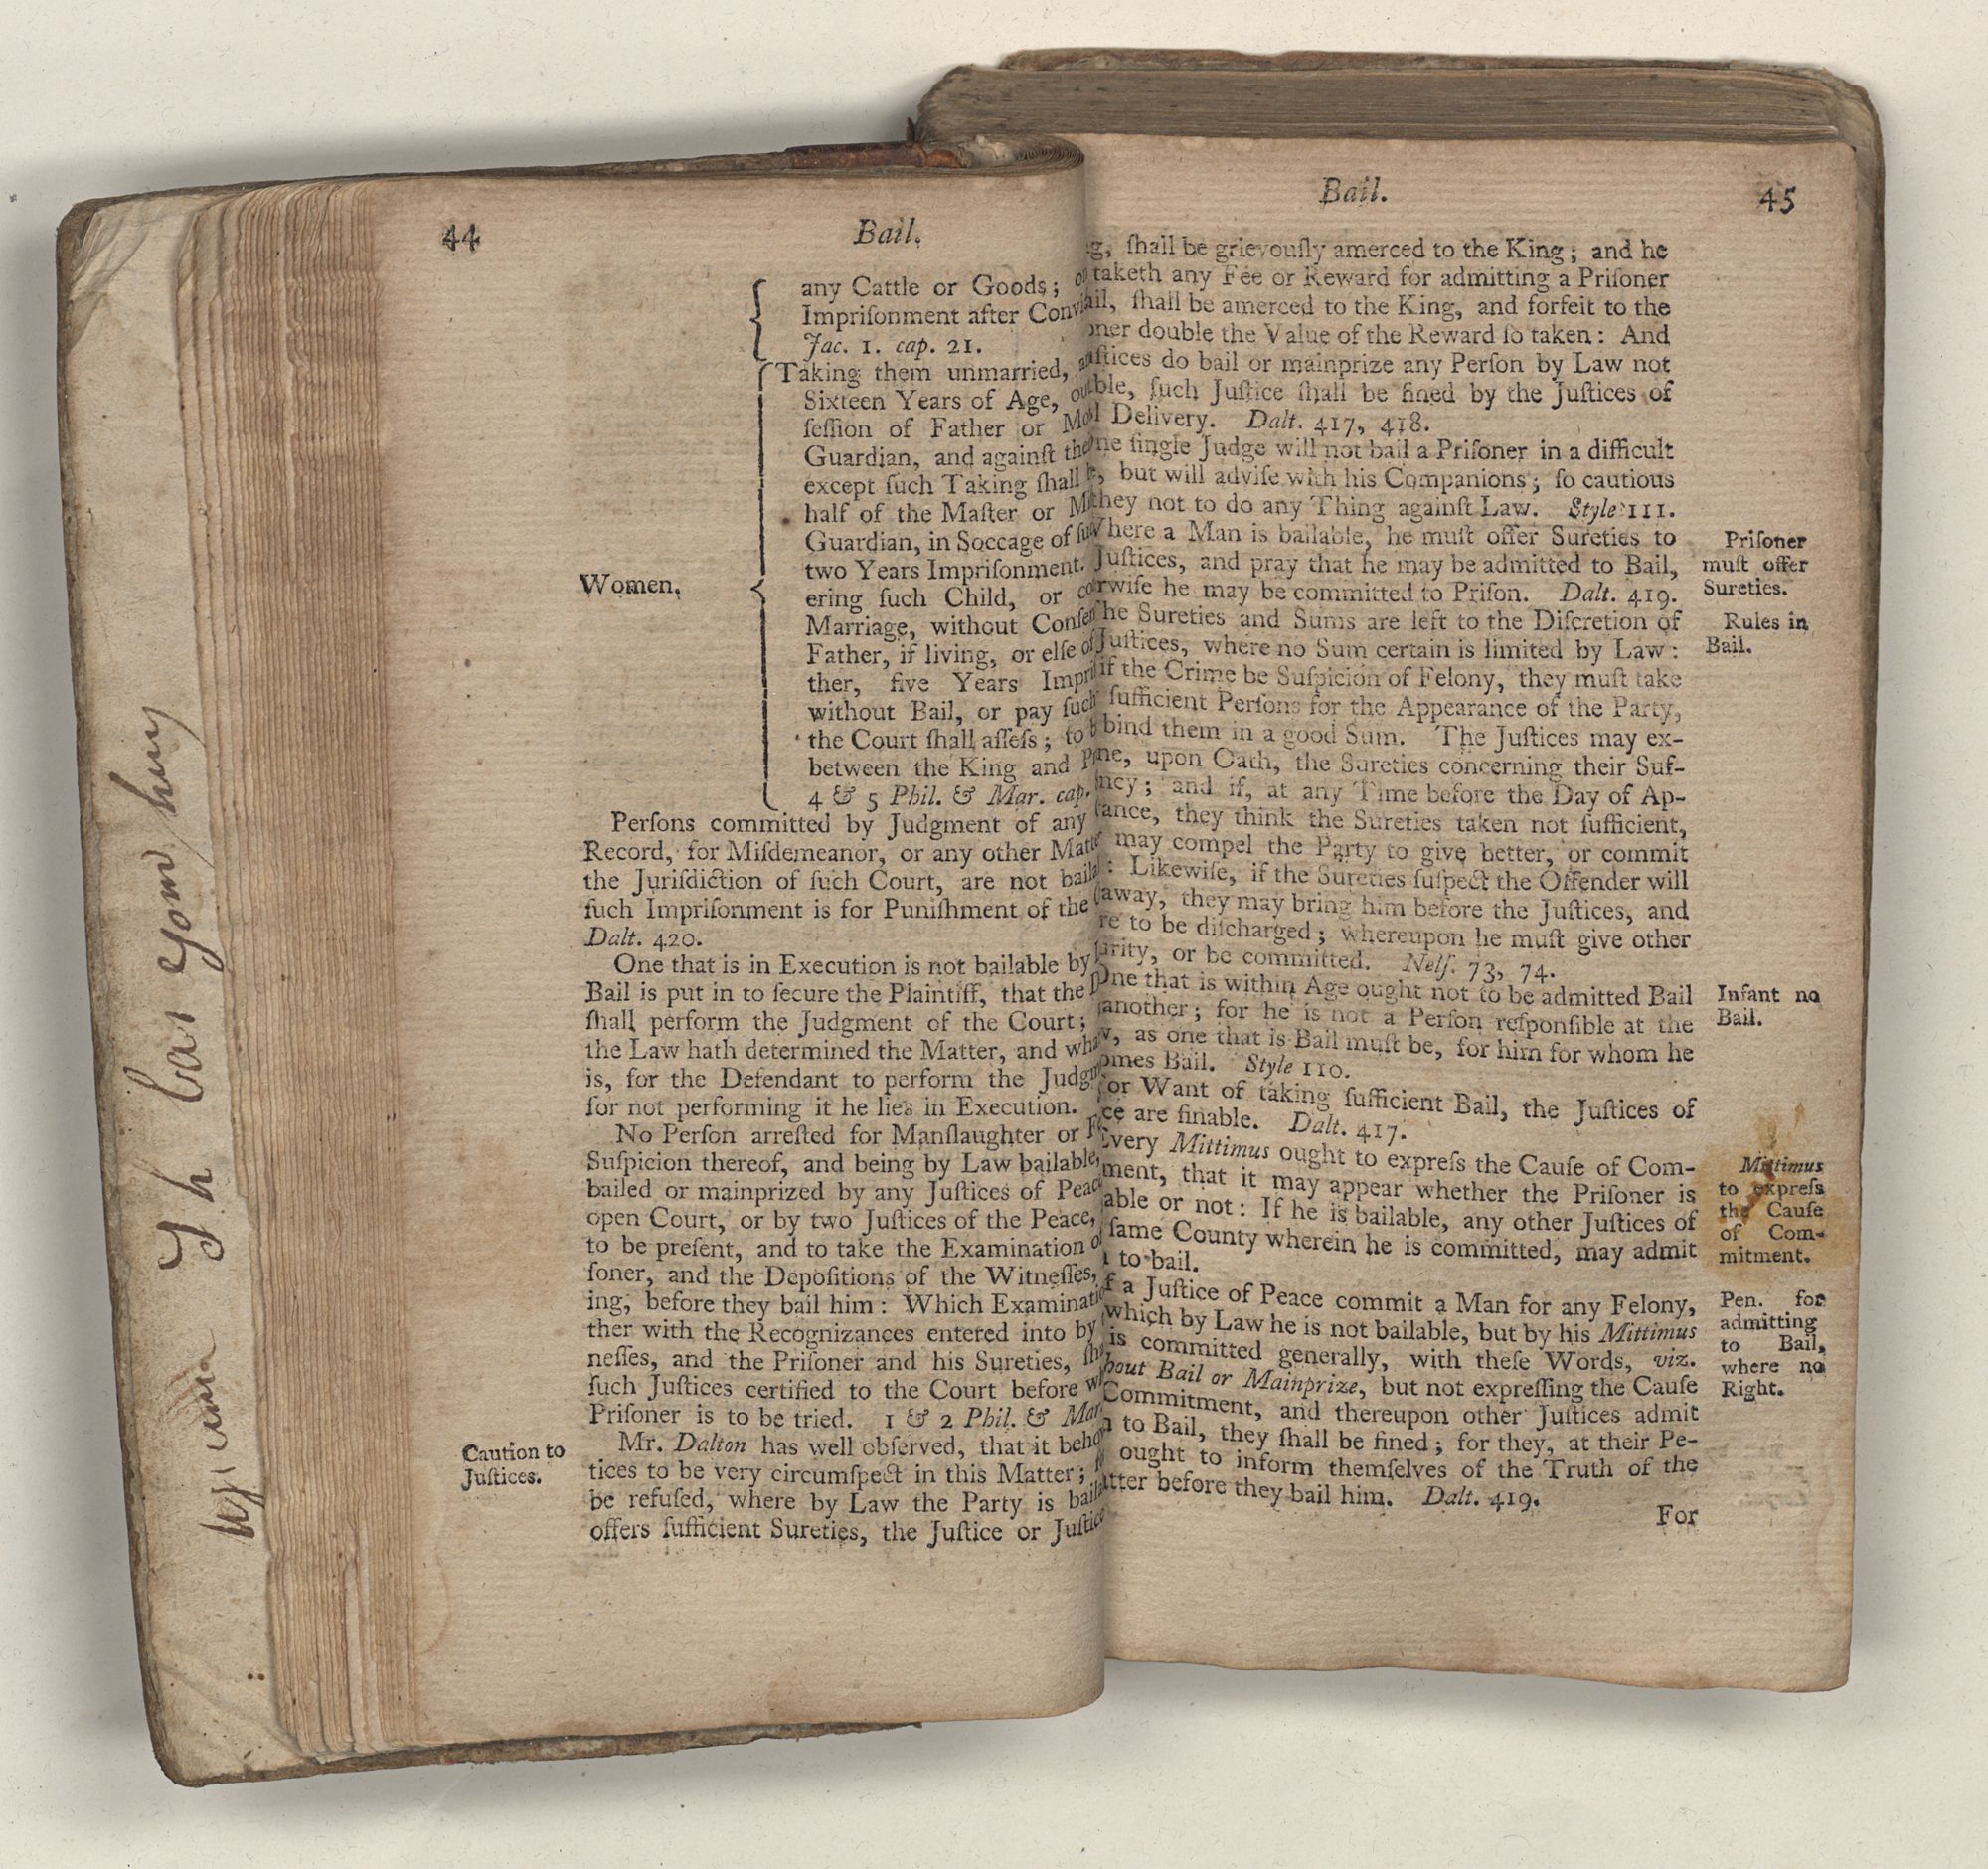 44
Bail.
any Cattle or Goods;
Impriſonment after
Jac. 1. cap. 21.
Women.
Taking them unmarried,
Sixteen Years of Age,
ſeſſion of Father or
Guardian, and againſt
except ſuch Taking ſhall
half of the Maſter or
Guardian, in Soccage of
two Years Impriſonment.
ering ſuch Child, or
Marriage, without
Father, if living, or elſe
ther, five Years
without Bail, or pay ſuch
the Court ſhall aſſeſs; to
between the King and
4 & 5 Phil. & Mar. cap.
Perſons committed by Judgment of any
Record, for Miſdemeanor, or any other
the Juriſdiction of ſuch Court, are not
ſuch Impriſonment is for Puniſhment of the
Dalt. 420.
One that is in Execution is not bailable by
Bail is put in to ſecure the Plaintiff, that the
ſhall perform the Judgment of the Court;
the Law hath determined the Matter, and
is, for the Defendant to perform the
for not performing it he lies in Execution.
No Perſon arreſted for Manſlaughter or
Suſpicion thereof, and being by Law bailable,
bailed or mainprized by any Juſtices of
open Court, or by two Juſtices of the Peace,
to be preſent, and to take the Examination
ſoner, and the Depoſitions of the Witneſſes,
ing, before they bail him: Which
ther with the Recognizances entered into by
neſſes, and the Priſoner and his Sureties,
ſuch Juſtices certified to the Court before
Priſoner is to be tried. 1 & 2 Phil. & Mar.
Caution to
Juſtices.
Mr. Dalton has well obſerved, that it
tices to be very circumſpect in this Matter;
be refuſed, where by Law the Party is
offers ſufficient Sureties, the Juſtice or
Bail.
45
ſhall be grievouſly amerced to the King; and he
taketh any Fee or Reward for admitting a Priſoner
ſhall be amerced to the King, and forfeit to the
double the Value of the Reward ſo taken: And
do bail or mainprize any Perſon by Law not
ſuch Juſtice ſhall be fined by the Juſtices of
Delivery. Dalt. 417, 418.
ſingle Judge will not bail a Priſoner in a difficult
but will adviſe with his Companions; ſo cautious
they not to do any Thing againſt Law. Style 111.
Where a Man is bailable, he muſt offer Sureties to
Juſtices, and pray that he may be admitted to Bail,
he may be committed to Priſon. Dalt. 419.
Priſoner
muſt offer
Sureties.
Sureties and Sums are left to the Diſcretion of
Juſtices, where no Sum certain is limited by Law:
if the Crime be Suſpicion of Felony, they muſt take
ſufficient Perſons for the Appearance of the Party,
bind them in a good Sum. The Juſtices may ex-
upon Oath, the Sureties concerning their Suf-
and if, at any Time before the Day of Ap-
they think the Sureties taken not ſufficient,
may compel the Party to give better, or commit
Likewiſe, if the Sureties ſuſpect the Offender will
away, they may bring him before the Juſtices, and
to be diſcharged; whereupon he muſt give other
or be committed. Nelſ. 73, 74.
Rules in
Bail.
One that is within Age ought not to be admitted Bail
another; for he is not a Perſon reſponſible at the
as one that is Bail muſt be, for him for whom he
Bail. Style 110.
Infant no
Bail.
For Want of taking ſufficient Bail, the Juſtices of
are finable. Dalt. 417.
Every Mittimus ought to expreſs the Cauſe of Com-
ment, that it may appear whether the Priſoner is
able or not: If he is bailable, any other Juſtices of
ſame County wherein he is committed, may admit
to bail.
Mittimus
to expreſs
the Cauſe
of Com-
mitment.
If a Juſtice of Peace commit a Man for any Felony,
which by Law he is not bailable, but by his Mittimus
is committed generally, with theſe Words, viz.
Bail or Mainprize, but not expreſſing the Cauſe
Commitment, and thereupon other Juſtices admit
to Bail, they ſhall be fined; for they, at their Pe-
ought to inform themſelves of the Truth of the
before they bail him. Dalt. 419.
Pen. for
admitting
to Bail,
where no
Right.
For